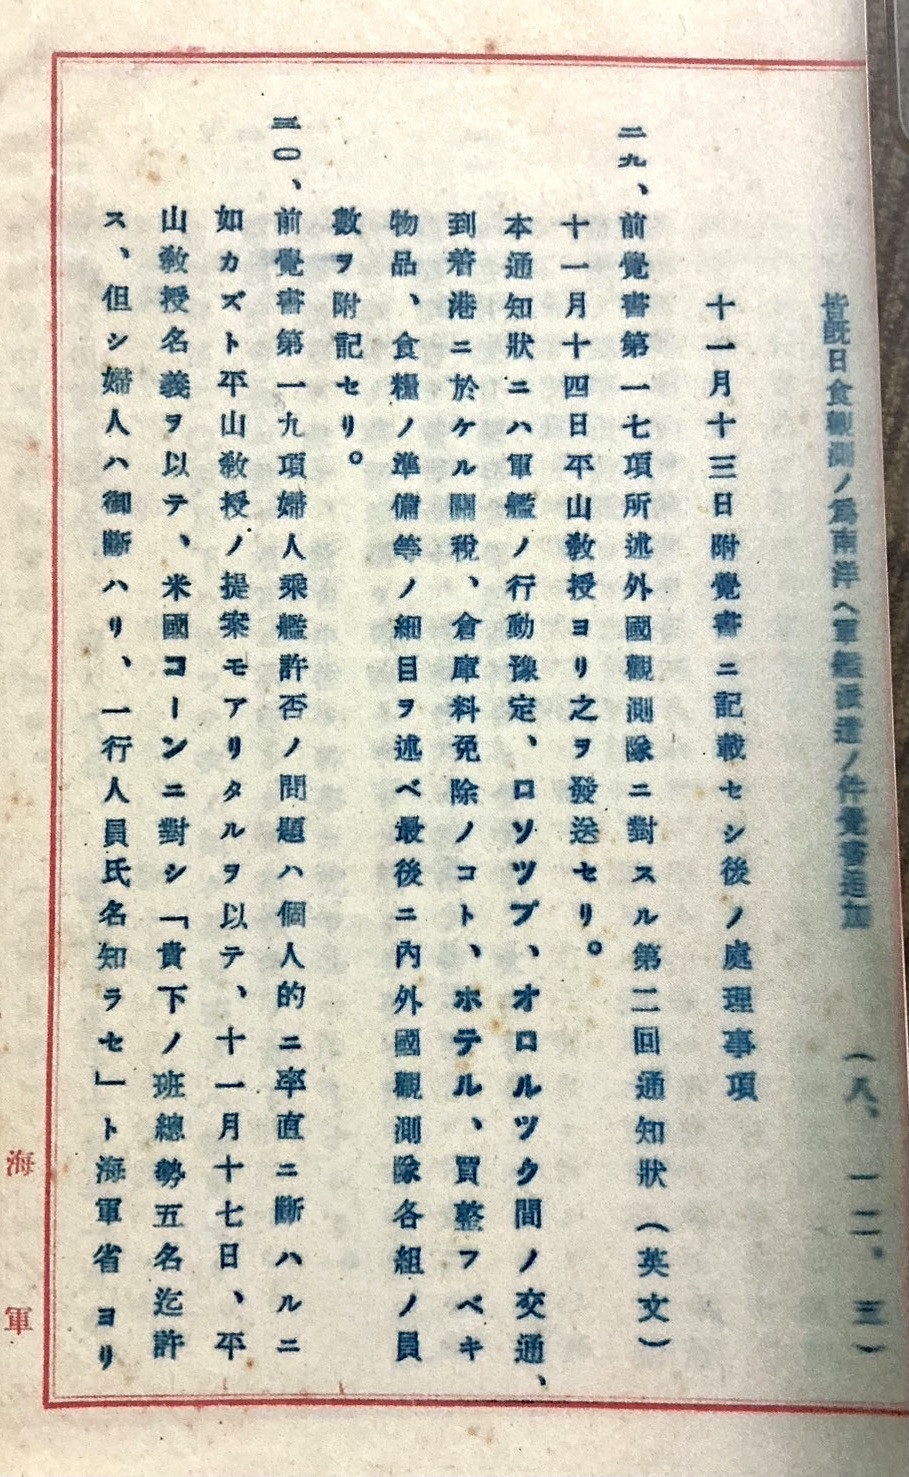 皆既日食觀測ノ爲南洋ヘ軍艦派遣ノ件覺書追加 (八、一二、三)
十一月十三日附覺書ニ記載セシ後ノ處理事項
二九、前覺書第一七項所述外國觀測隊ニ對スル第二回通知狀(英文)
十一月十四日平山敎授ヨリ之ヲ發送セリ。
本通知狀ニハ軍艦ノ行動豫定、ロソツプ、オロルツク間ノ交通、
到着港ニ於ケル關稅、倉庫料免除ノコト、ホテル、買整フベキ
物品、食糧ノ準備等ノ細目ヲ述ベ最後ニ內外國觀測隊各組ノ員
數ヲ附記セリ。
三〇、前覺書第一九項婦人乘艦許否ノ問題ハ個人的ニ率直ニ斷ハルニ
如カズト平山敎授ノ提案モアリタルヲ以テ、十一月十七日、平
山敎授名義ヲ以テ、米國コーンニ對シ「貴下ノ班總勢五名迄許
ス、但シ婦人ハ御斷ハリ、一行人員氏名知ラセ」ト海軍省ヨリ
海軍